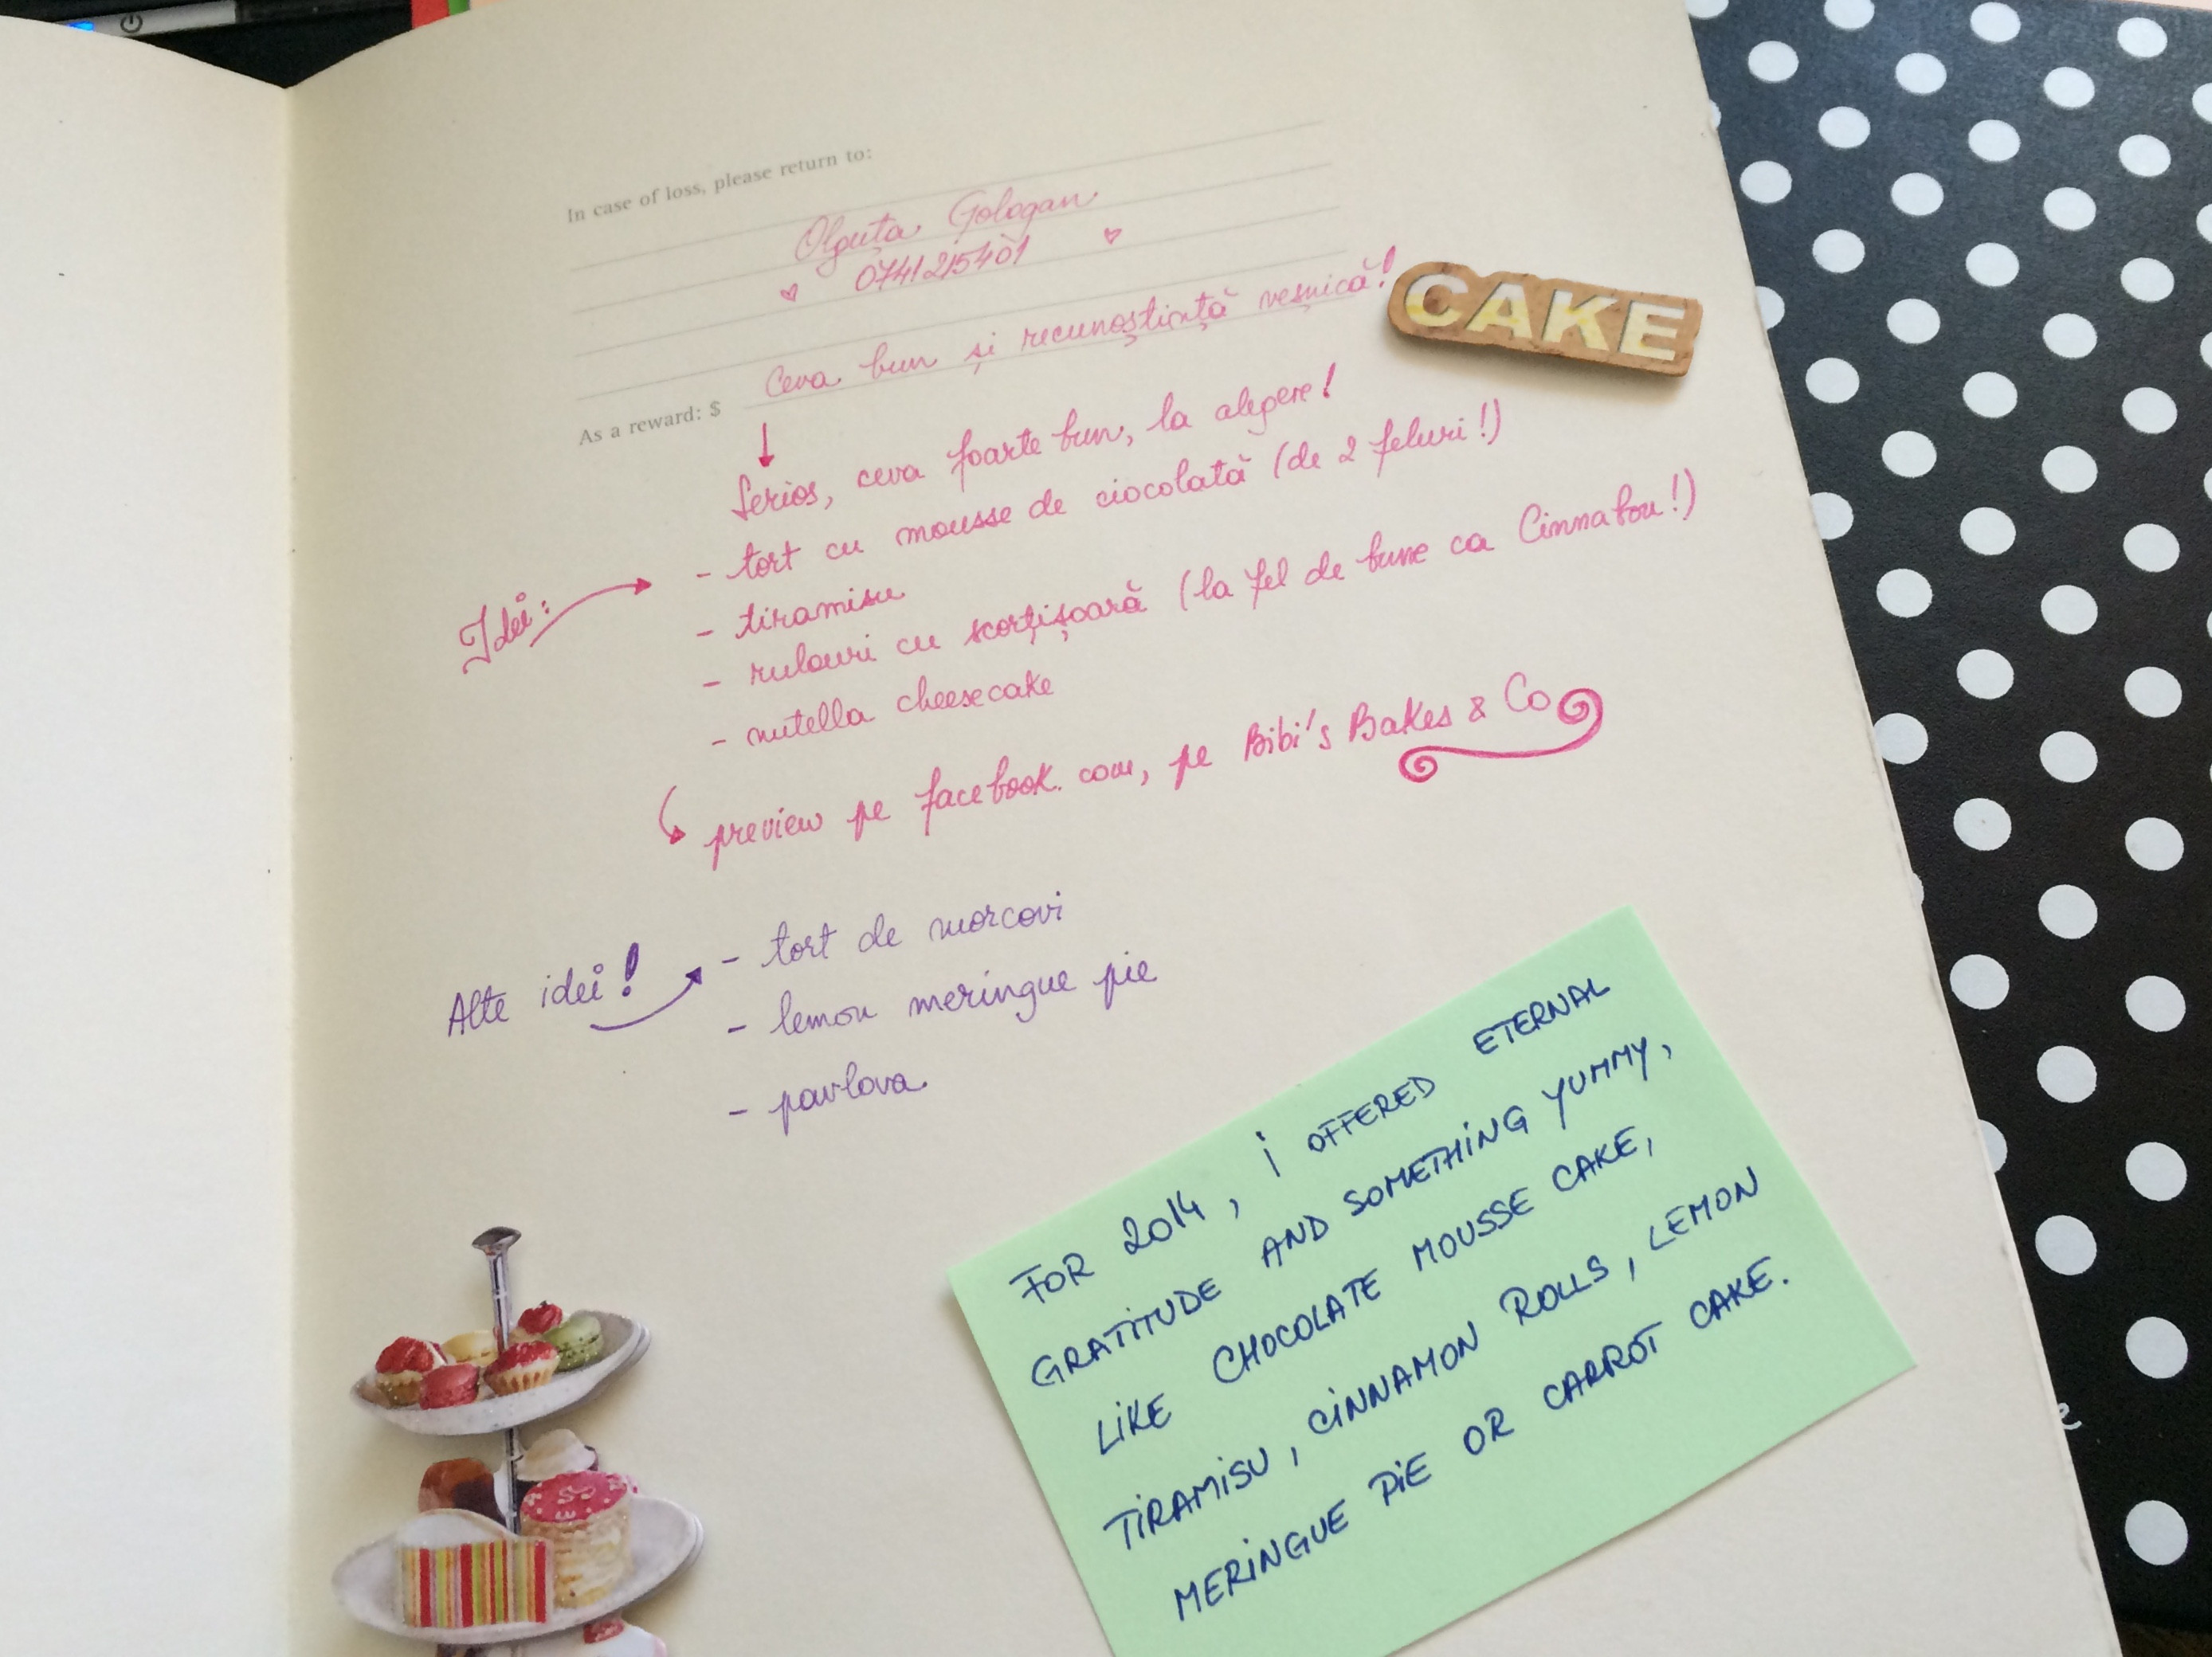 In case of loss, please return to:
Olguța Gologan
0741215401
As a reward: $ Ceva bun și recunoștință veșnică!
CAKE
Serios, ceva foarte bun, la alegere!
Idei:
- tort cu mousse de ciocolată (de 2 feluri!)
- tiramisu
- rulouri cu scorțișoară (la fel de bune ca Cinnabon!)
- nutella cheesecake
preview pe facebook.com, pe Bibi's Bakes & Co
Alte idei!
- tort de morcovi
- lemon meringue pie
- pavlova
FOR 2014, I OFFERED ETERNAL
GRATITUDE AND SOMETHING YUMMY,
LIKE CHOCOLATE MOUSSE CAKE,
TIRAMISU, CINNAMON ROLLS, LEMON
MERINGUE PIE OR CARROT CAKE.